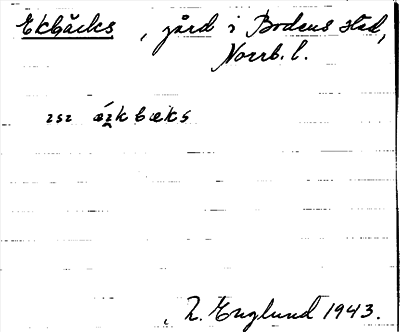 Ekbäcks, gård i Bodens stad,
Norrb. l.
bæks
Englund 1943.